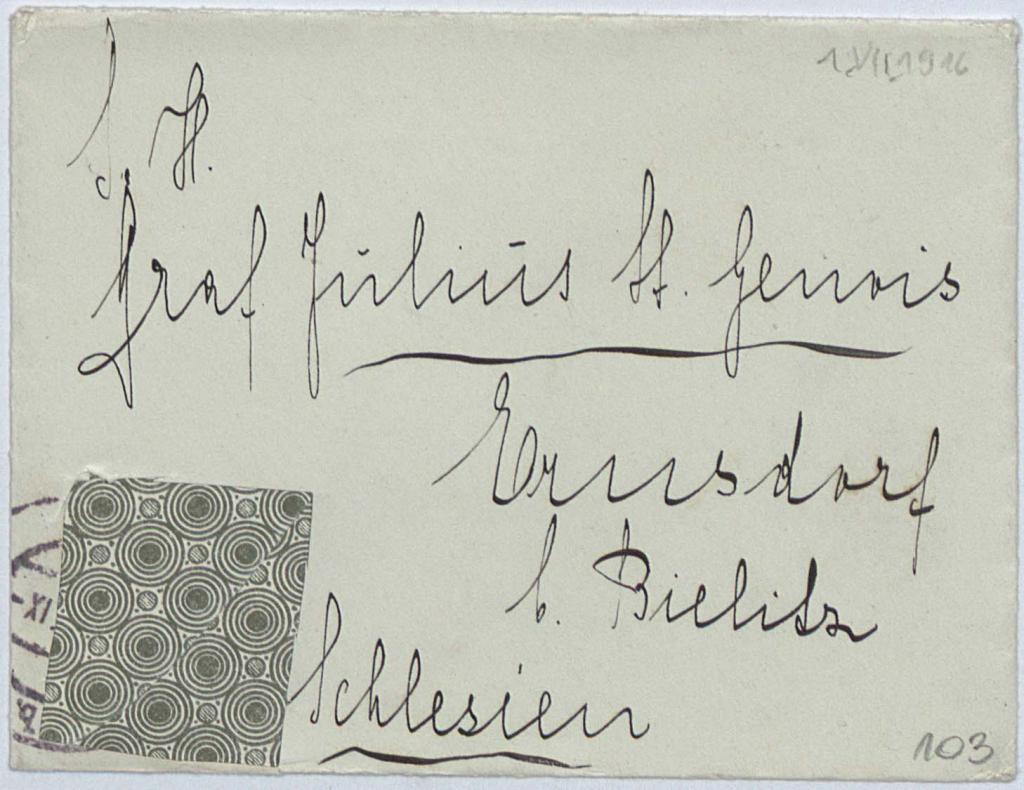 1 VII 1916
S. H.
Graf Julius St. Genois
Ernsdorf
b. Bielitz
Schlesien
XI
103